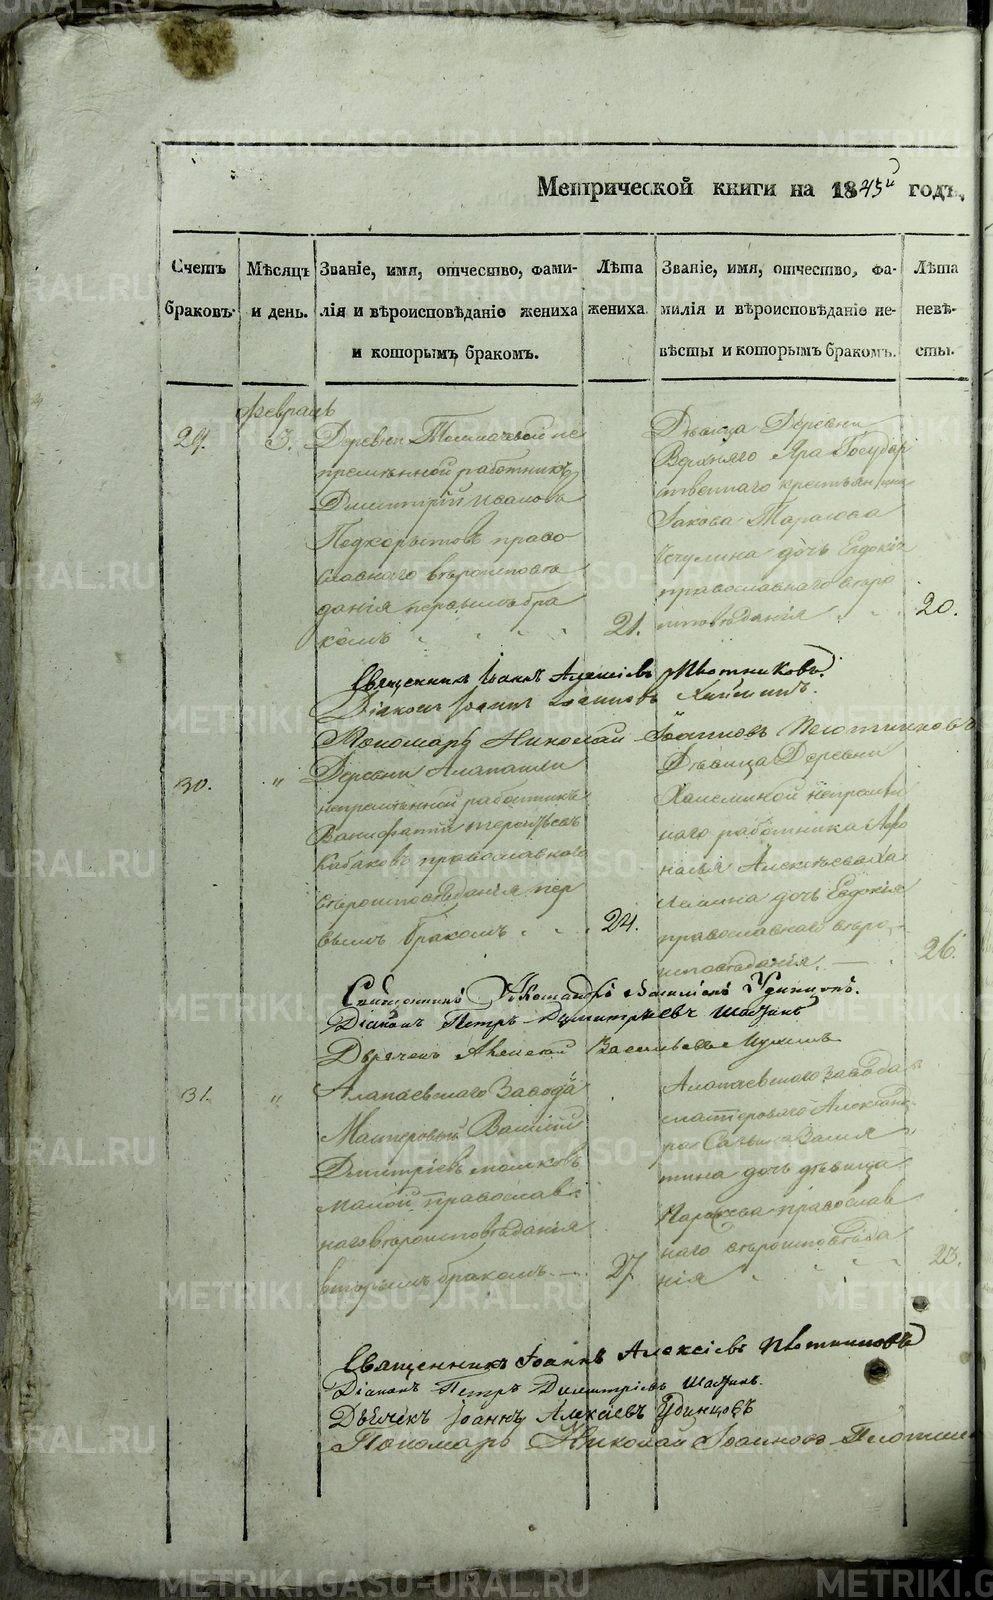 Метрической книги на 1845й годъ,
Счетъ браковъ.
Мѣсяцъ и день.
Званіе, имя, отчество, фами-
лія и вѣроисповѣданіе жениха
и которымъ бракомъ.
Лѣта жениха.
Званіе, имя, отчество, фа-
милія и вѣроисповѣданіе не-
вѣсты и которымъ бракомъ.
Лѣта невѣ-
сты.
Февраль
29.
3.
Деревни Толмачевой не
премѣнной работникъ
Димитрій Ивановъ
Подкорытовъ право
славнаго вѣроисповѣ
данія первымъ бра
комъ
21.
Дѣвица Деревни
Верхняго Яра Государ
ственнаго крестьянина
Іакова Тарасова
дочь Евдокія
православнаго вѣро
исповѣданія
20.
Священникъ Іоаннъ Алексіевъ Плотниковъ.
Діаконъ
Пономарь Николай Іоанновъ Плотниковъ
30.
"
Деревни Алапаихи
непремѣнной работникъ
Вонифатій Терентьевъ
Кабаковъ православнаго
вѣроисповѣданія пер
вымъ бракомъ
24.
Дѣвица Деревни
непремѣн
наго работника Афо
насья Алексѣева Ха
лемина дочь Евдокія
православнаго вѣро-
исповѣданія.
26.
Священникъ Удинцовъ.
Діаконъ Петръ Димитріевъ
Дьячекъ Алексѣй Васильевъ
31.
"
Алапаевскаго Завода
Мастеровый Василій
Дмитріевъ
православ
наго вѣроисповѣданія
вторымъ бракомъ
27.
Алапаевскаго Завода
мастероваго Александ
ра
дочь дѣвица
православ
наго вѣроисповѣда
нія
23.
Священникъ Іоаннъ Алексіевъ Плотниковъ
Діаконъ Петръ Димитріевъ
Дьячекъ Іоаннъ Алексіевъ Удинцовъ
Пономарь Николай Іоанновъ
METRIKI.GASO-URAL.RU